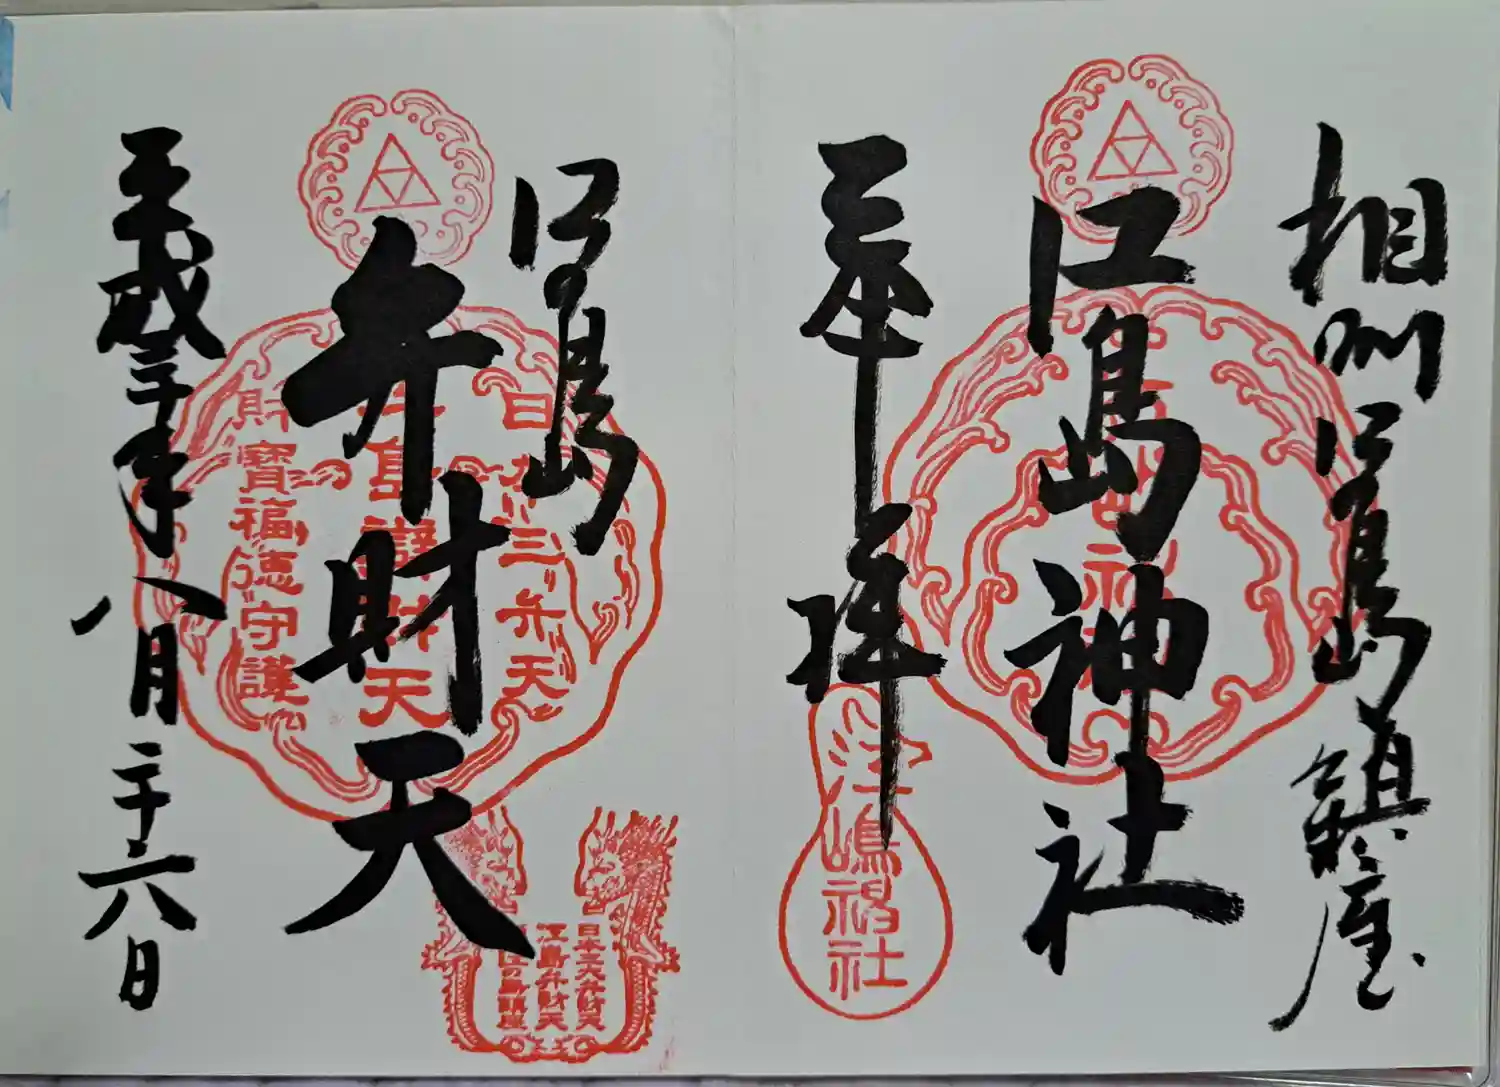 相州江島鎮座
江島神社
奉拝
江嶋神社
江島
弁財天
平成三十年八月二十六日
日本三弁天
江島辨財天
財寶福徳守護
日本三大弁財天
江島弁財天